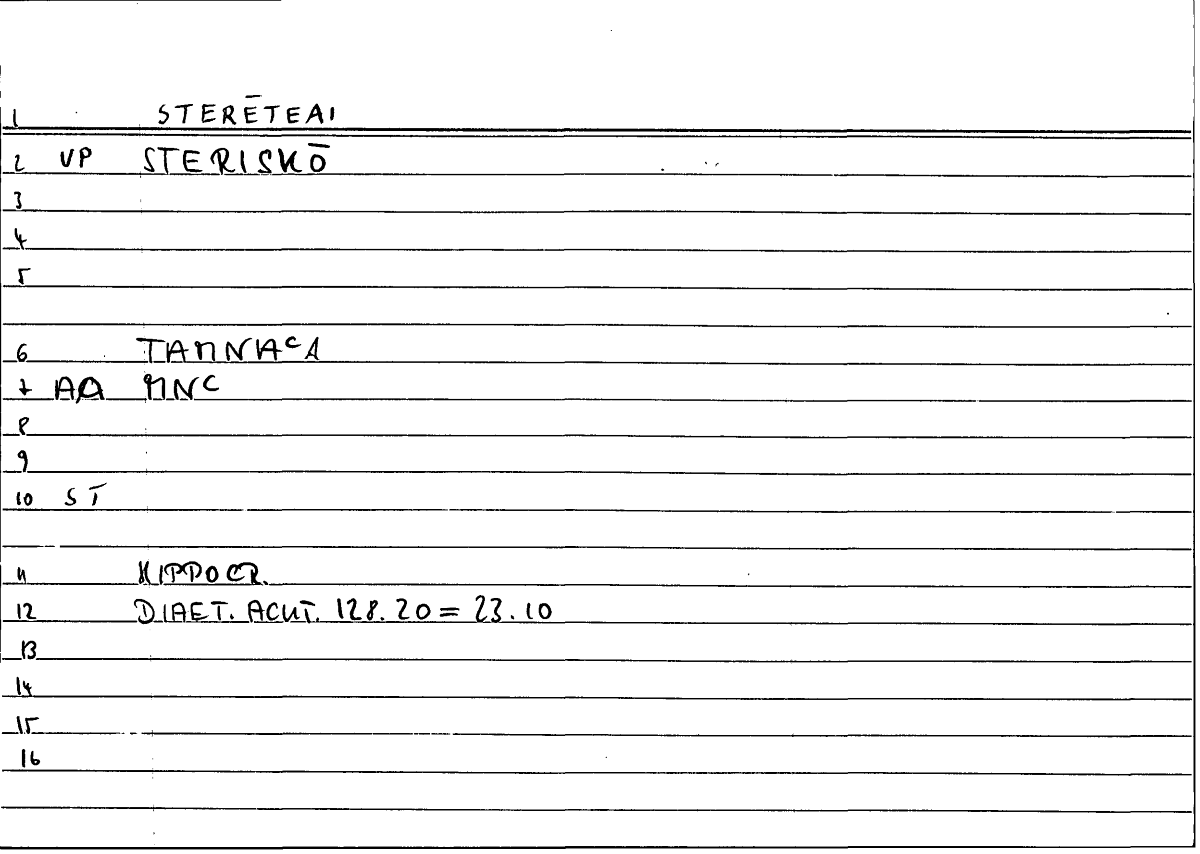 1 STERĒTEAI
2 VP STERISKŌ
3
4
5
6 TAMNAᶜA
7 AA MNᶜ
8
9
10 ST
11 HIPPOCR.
12 DIAET. ACUT. 128.20 = 23.10
13
14
15
16